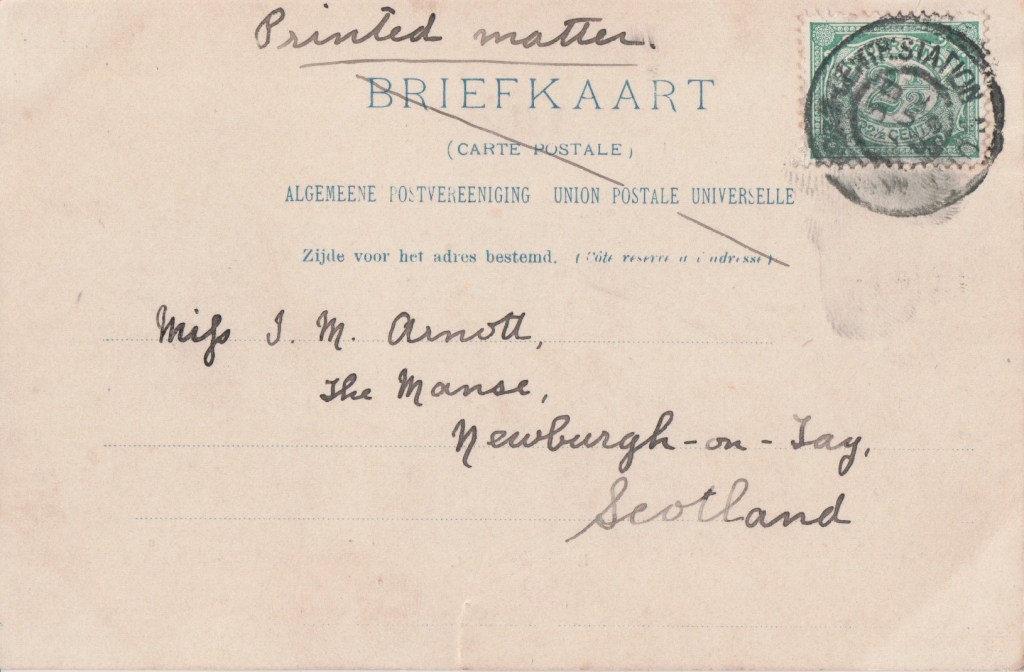 Printed matter.
BRIEFKAART
(CARTE POSTALE)
ALGEMEENE POSTVEREENIGING UNION POSTALE UNIVERSELLE
Zijde voor het adres bestemd. (Côté réservé à l'adresse)
2½ CENT
STATION
Miss I. M. Arnott,
The Manse,
Newburgh-on-Tay,
Scotland